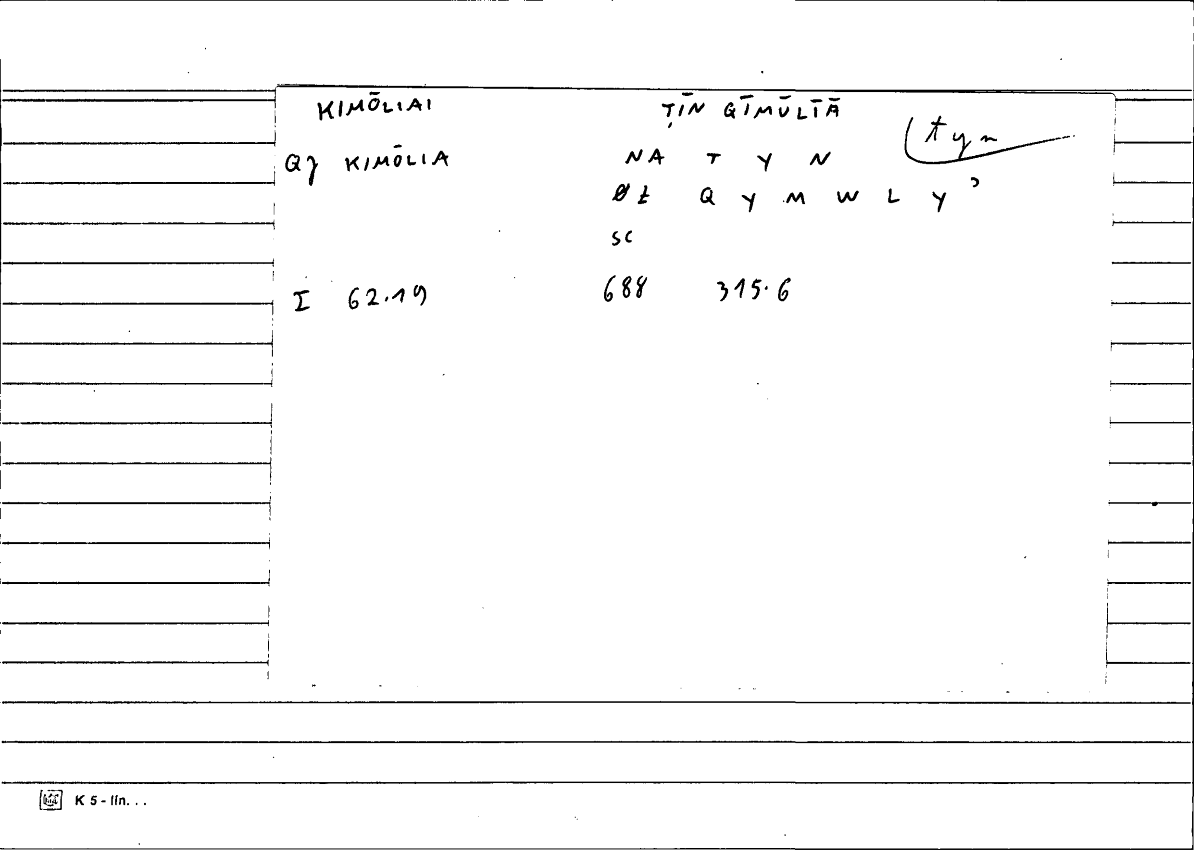 KIMŌLIAI ṬĪN QĪMŪLĪĀ
ṭyn
Qγ KIMŌLIA NA T Y N
Ø ṭ Q Y M W L Y ʾ
SC
I 62.19 688 315.6
K 5 - lin. . .